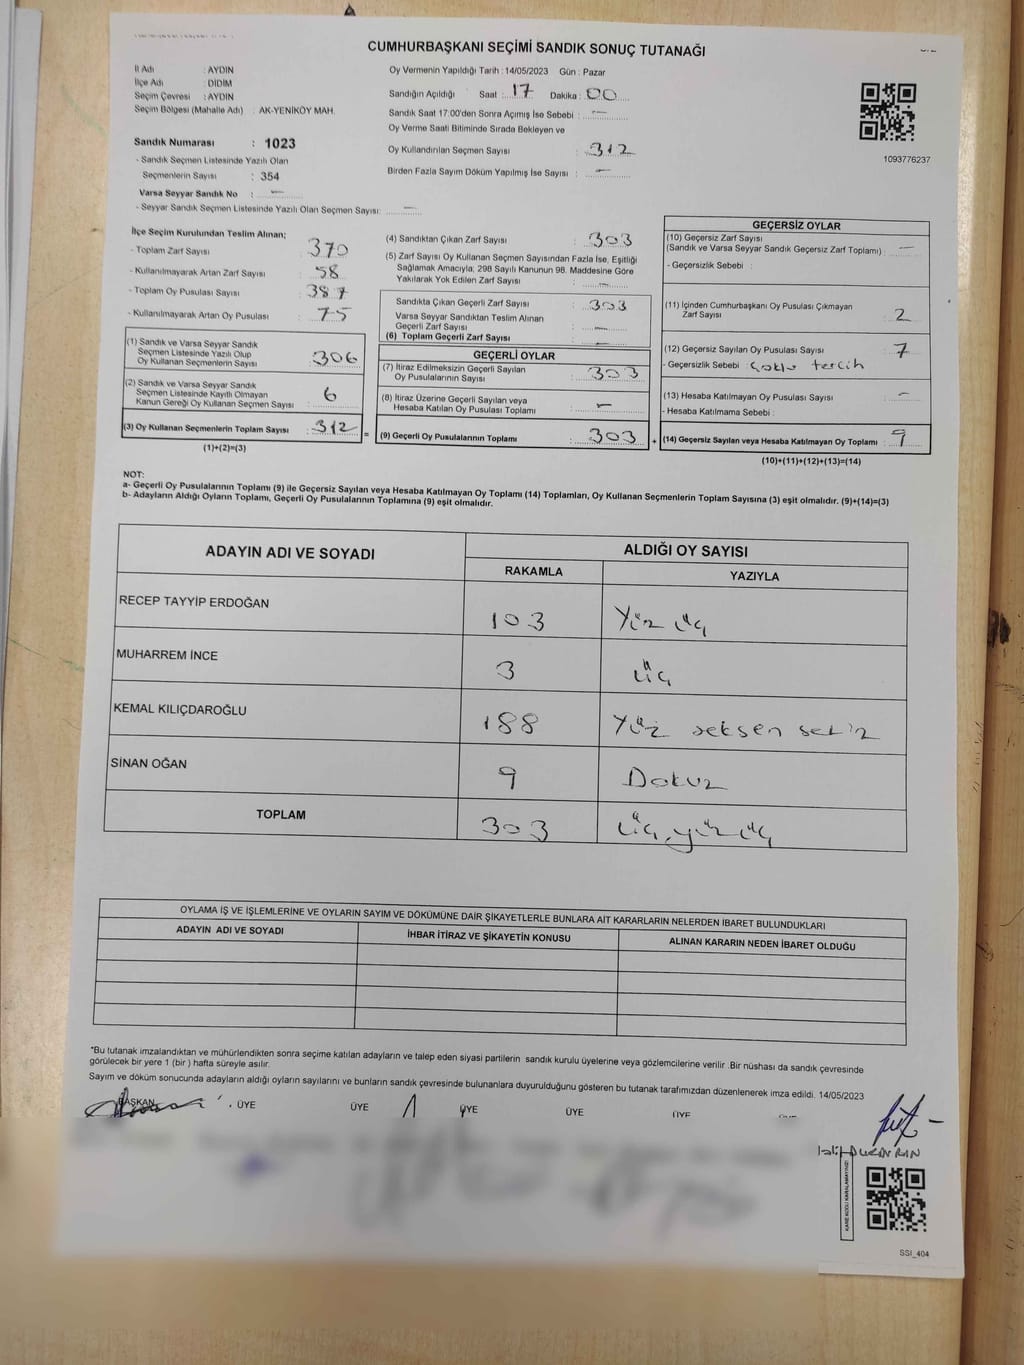 CUMHURBAŞKANI SEÇİMİ SANDIK SONUÇ TUTANAĞI
İl Adı : AYDIN
İlçe Adı : DİDİM
Seçim Çevresi : AYDIN
Seçim Bölgesi (Mahalle Adı) : AK-YENİKÖY MAH.
Sandık Numarası : 1023
- Sandık Seçmen Listesinde Yazılı Olan
Seçmenlerin Sayısı : 354
Varsa Seyyar Sandık No : —
- Seyyar Sandık Seçmen Listesinde Yazılı Olan Seçmen Sayısı: —
Oy Vermenin Yapıldığı Tarih : 14/05/2023 Gün : Pazar
Sandığın Açıldığı Saat : 17 Dakika : 00
Sandık Saat 17:00'den Sonra Açımış İse Sebebi : —
Oy Verme Saati Bitiminde Sırada Bekleyen ve
Oy Kullandırılan Seçmen Sayısı : 312
Birden Fazla Sayım Döküm Yapılmış İse Sayısı : —
1093776237
İlçe Seçim Kurulundan Teslim Alınan;
- Toplam Zarf Sayısı : 370
- Kullanılmayarak Artan Zarf Sayısı : 58
- Toplam Oy Pusulası Sayısı : 387
- Kullanılmayarak Artan Oy Pusulası : 75
(1) Sandık ve Varsa Seyyar Sandık
Seçmen Listesinde Yazılı Olup
Oy Kullanan Seçmenlerin Sayısı : 306
(2) Sandık ve Varsa Seyyar Sandık
Seçmen Listesinde Kayıtlı Olmayan
Kanun Gereği Oy Kullanan Seçmen Sayısı : 6
(3) Oy Kullanan Seçmenlerin Toplam Sayısı : 312 =
(1)+(2)=(3)
(4) Sandıktan Çıkan Zarf Sayısı : 303
(5) Zarf Sayısı Oy Kullanan Seçmen Sayısından Fazla İse, Eşitliği
Sağlamak Amacıyla; 298 Sayılı Kanunun 98. Maddesine Göre
Yakılarak Yok Edilen Zarf Sayısı : —
Sandıkta Çıkan Geçerli Zarf Sayısı : 303
Varsa Seyyar Sandıktan Teslim Alınan
Geçerli Zarf Sayısı : —
(6) Toplam Geçerli Zarf Sayısı : —
GEÇERLİ OYLAR
(7) İtiraz Edilmeksizin Geçerli Sayılan
Oy Pusulalarının Sayısı : 303
(8) İtiraz Üzerine Geçerli Sayılan veya
Hesaba Katılan Oy Pusulası Toplamı : —
(9) Geçerli Oy Pusulalarının Toplamı : 303 +
GEÇERSİZ OYLAR
(10) Geçersiz Zarf Sayısı
(Sandık ve Varsa Seyyar Sandık Geçersiz Zarf Toplamı) : —
- Geçersizlik Sebebi :
(11) İçinden Cumhurbaşkanı Oy Pusulası Çıkmayan
Zarf Sayısı : 2
(12) Geçersiz Sayılan Oy Pusulası Sayısı : 7
- Geçersizlik Sebebi : Çoklu tercih
(13) Hesaba Katılmayan Oy Pusulası Sayısı : —
- Hesaba Katılmama Sebebi :
(14) Geçersiz Sayılan veya Hesaba Katılmayan Oy Toplamı : 9
(10)+(11)+(12)+(13)=(14)
NOT:
a- Geçerli Oy Pusulalarının Toplamı (9) ile Geçersiz Sayılan veya Hesaba Katılmayan Oy Toplamı (14) Toplamları, Oy Kullanan Seçmenlerin Toplam Sayısına (3) eşit olmalıdır. (9)+(14)=(3)
b- Adayların Aldığı Oyların Toplamı, Geçerli Oy Pusulalarının Toplamına (9) eşit olmalıdır.
ADAYIN ADI VE SOYADI ALDIĞI OY SAYISI
RAKAMLA YAZIYLA
RECEP TAYYİP ERDOĞAN 103 Yüz üç
MUHARREM İNCE 3 üç
KEMAL KILIÇDAROĞLU 188 Yüz seksen sekiz
SİNAN OĞAN 9 Dokuz
TOPLAM 303 üç yüz üç
OYLAMA İŞ VE İŞLEMLERİNE VE OYLARIN SAYIM VE DÖKÜMÜNE DAİR ŞİKAYETLERLE BUNLARA AİT KARARLARIN NELERDEN İBARET BULUNDUKLARI
ADAYIN ADI VE SOYADI İHBAR İTİRAZ VE ŞİKAYETİN KONUSU ALINAN KARARIN NEDEN İBARET OLDUĞU
*Bu tutanak imzalandıktan ve mühürlendikten sonra seçime katılan adayların ve talep eden siyasi partilerin sandık kurulu üyelerine veya gözlemcilerine verilir .Bir nüshası da sandık çevresinde
görülecek bir yere 1 (bir ) hafta süreyle asılır.
Sayım ve döküm sonucunda adayların aldığı oyların sayılarını ve bunların sandık çevresinde bulunanlara duyurulduğunu gösteren bu tutanak tarafımızdan düzenlenerek imza edildi. 14/05/2023
BAŞKAN ÜYE ÜYE ÜYE ÜYE ÜYE
SSI_404